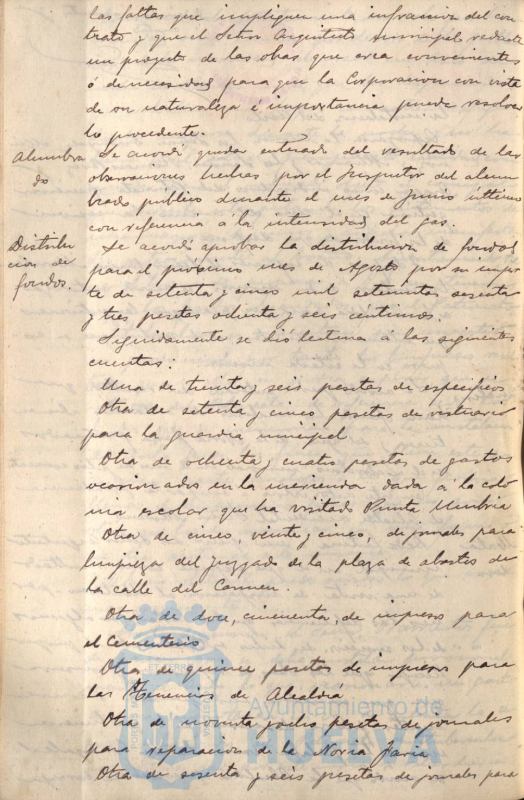 las faltas que impliquen una infraccion del con
trato y que el Señor Arquitecto Municipal redacte
un proyecto de las obras que crea convenientes
ó de necesidad para que la Corporacion con vista
de su naturaleza é importancia pueda resolver
lo procedente.
Alumbra
do
Se acordó quedar enterado del resultado de las
observaciones hechas por el Inspector del alum
brado público durante el mes de Junio último
con referencia á la intensidad del gas.
Distribu
cion de
fondos.
Se acordó aprobar la distribucion de fondos
para el próximo mes de Agosto por su impor
te de setenta y cinco mil setecientas sesenta
y tres pesetas ochenta y seis centimos.
Seguidamente se dió lectura á las siguientes
cuentas:
Una de treinta y seis pesetas de especificos
Otra de setenta y cinco pesetas de vestuario
para la guardia municipal
Otra de ochenta y cuatro pesetas de gastos
ocasionados en la merienda dada á la colo
nia escolar que ha visitado Punta Umbria
Otra de cinco, veinte y cinco, de jornales para
limpieza del Juzgado de la plaza de abastos de
la calle del Carmen.
Otra de doce, cincuenta, de impresos para
el Cementerio
Otra de quince pesetas de impresos para
las Tenencias de Alcaldia
Otra de noventa y ocho pesetas de jornales
para reparacion de la Noria
Otra de sesenta y seis pesetas de jornales para
Ayuntamiento de
HUELVA